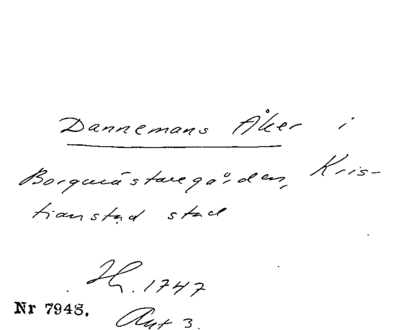 Dannemans Åker i
Borgmästaregården, Kris-
tianstad stad
Hh. 1747
Nr 7948.
Akt 3.